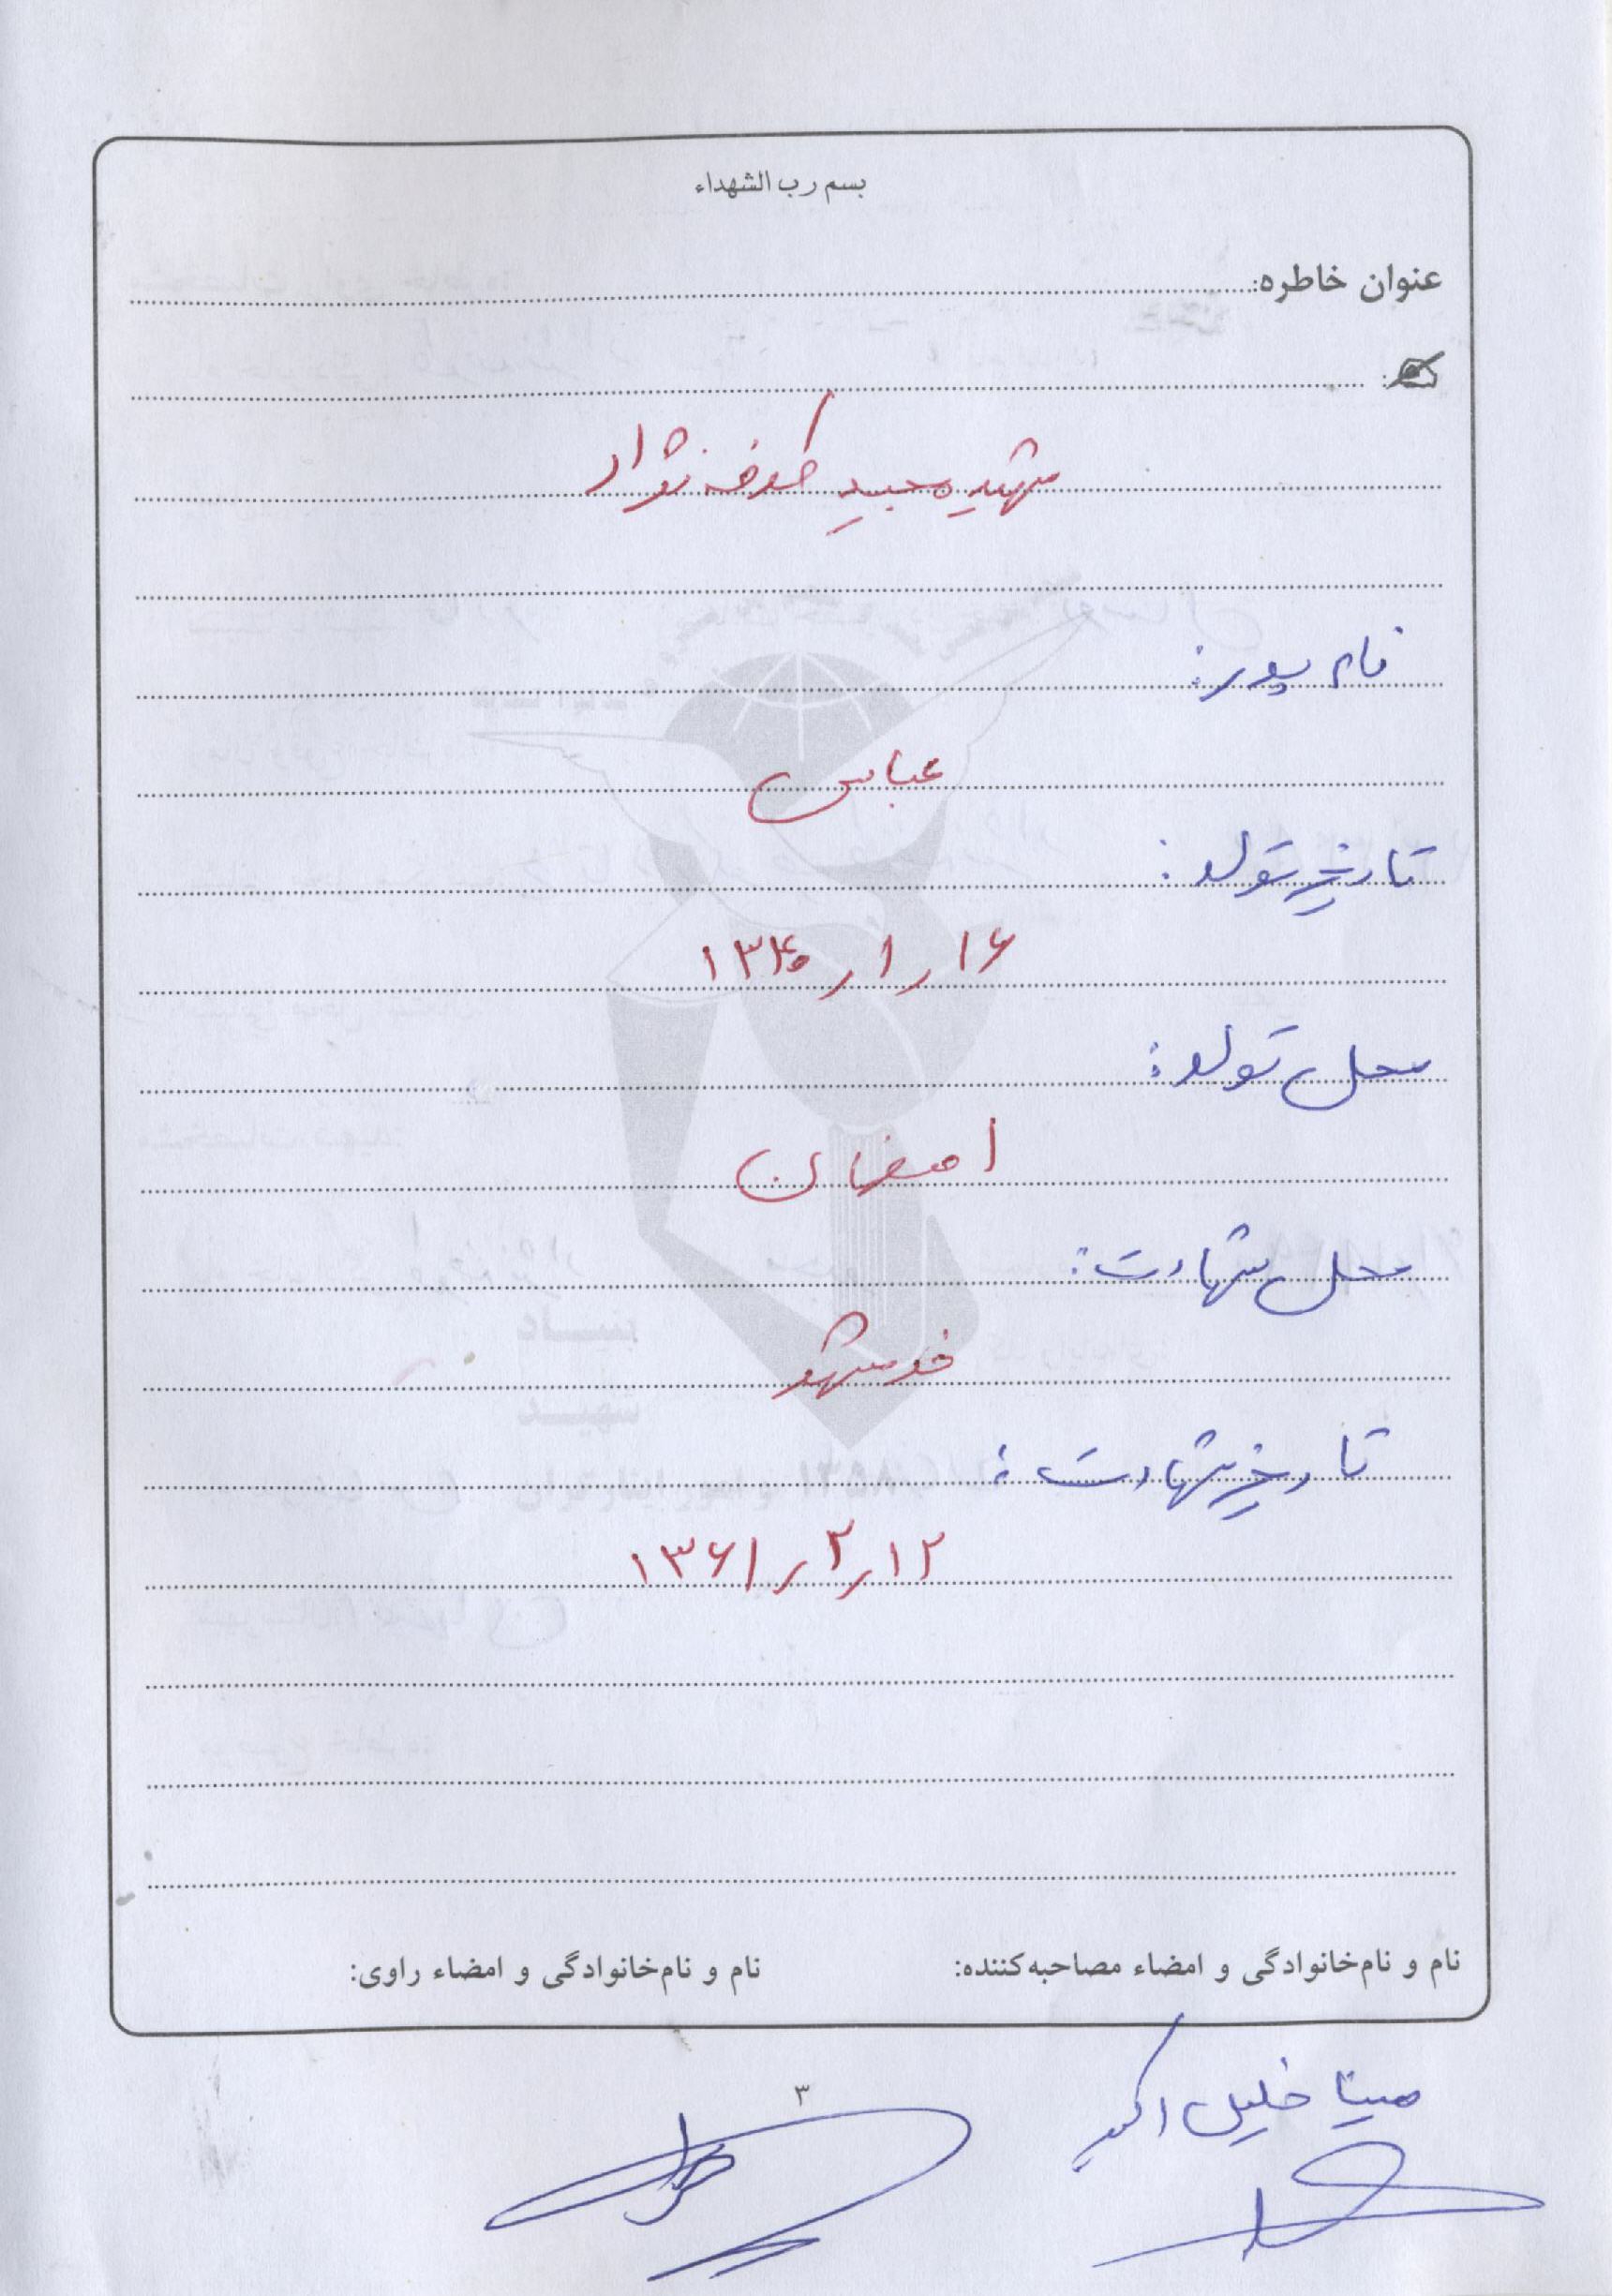 بسم رب الشهداء
عنوان خاطره:
شهید مجید طوفه نژاد
نام پدر:
عباس
تاریخ تولد:
۱۶ ر ۱ ر ۱۳۴۰
محل تولد:
اصفهان
محل شهادت:
خرمشهر
تاریخ شهادت:
۱۲ ر ۲ ر ۱۳۶۱
نام و نام‌خانوادگی و امضاء مصاحبه‌کننده:
نام و نام‌خانوادگی و امضاء راوی:
مینا خلیل اکبر
۳